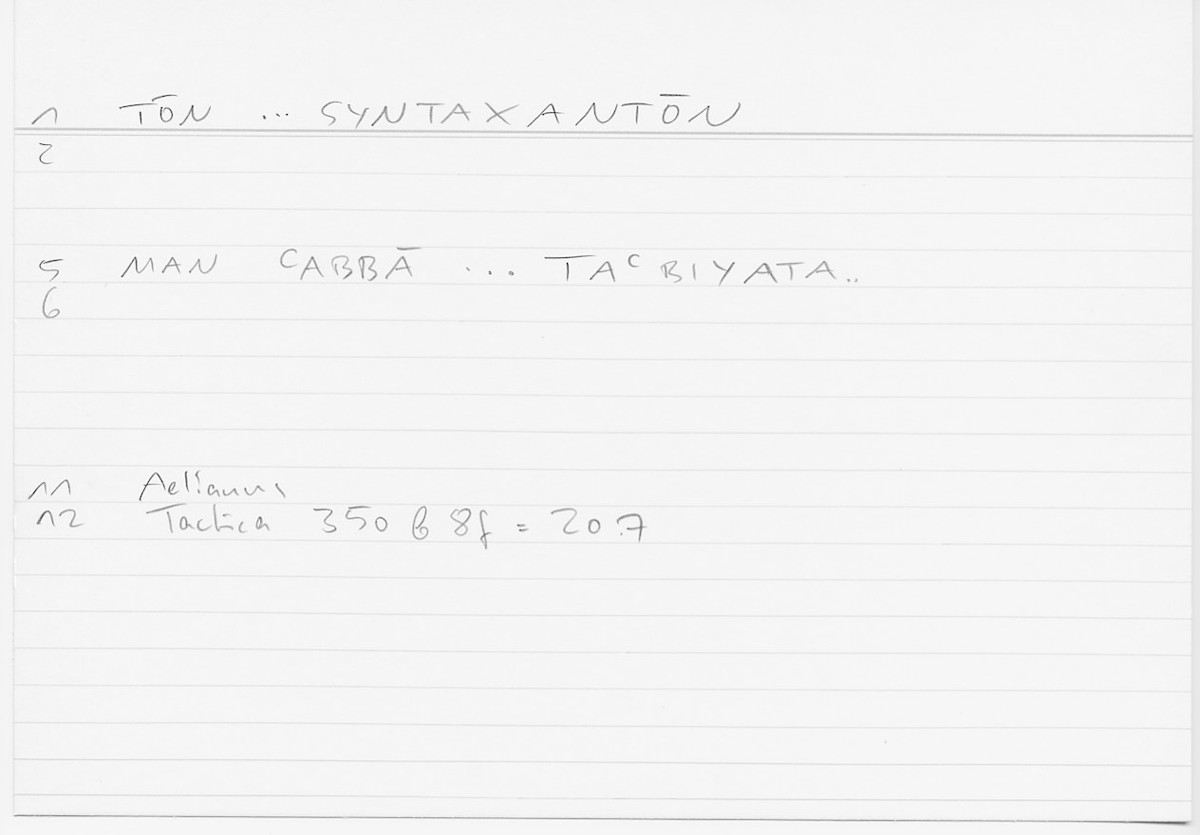 1 TŌN ... SYNTAXANTŌN
2
5 MAN ᶜABBĀ ... TAᶜBIYATA..
6
11 Aelianus
12 Tactica 350 b 8f = 20.7